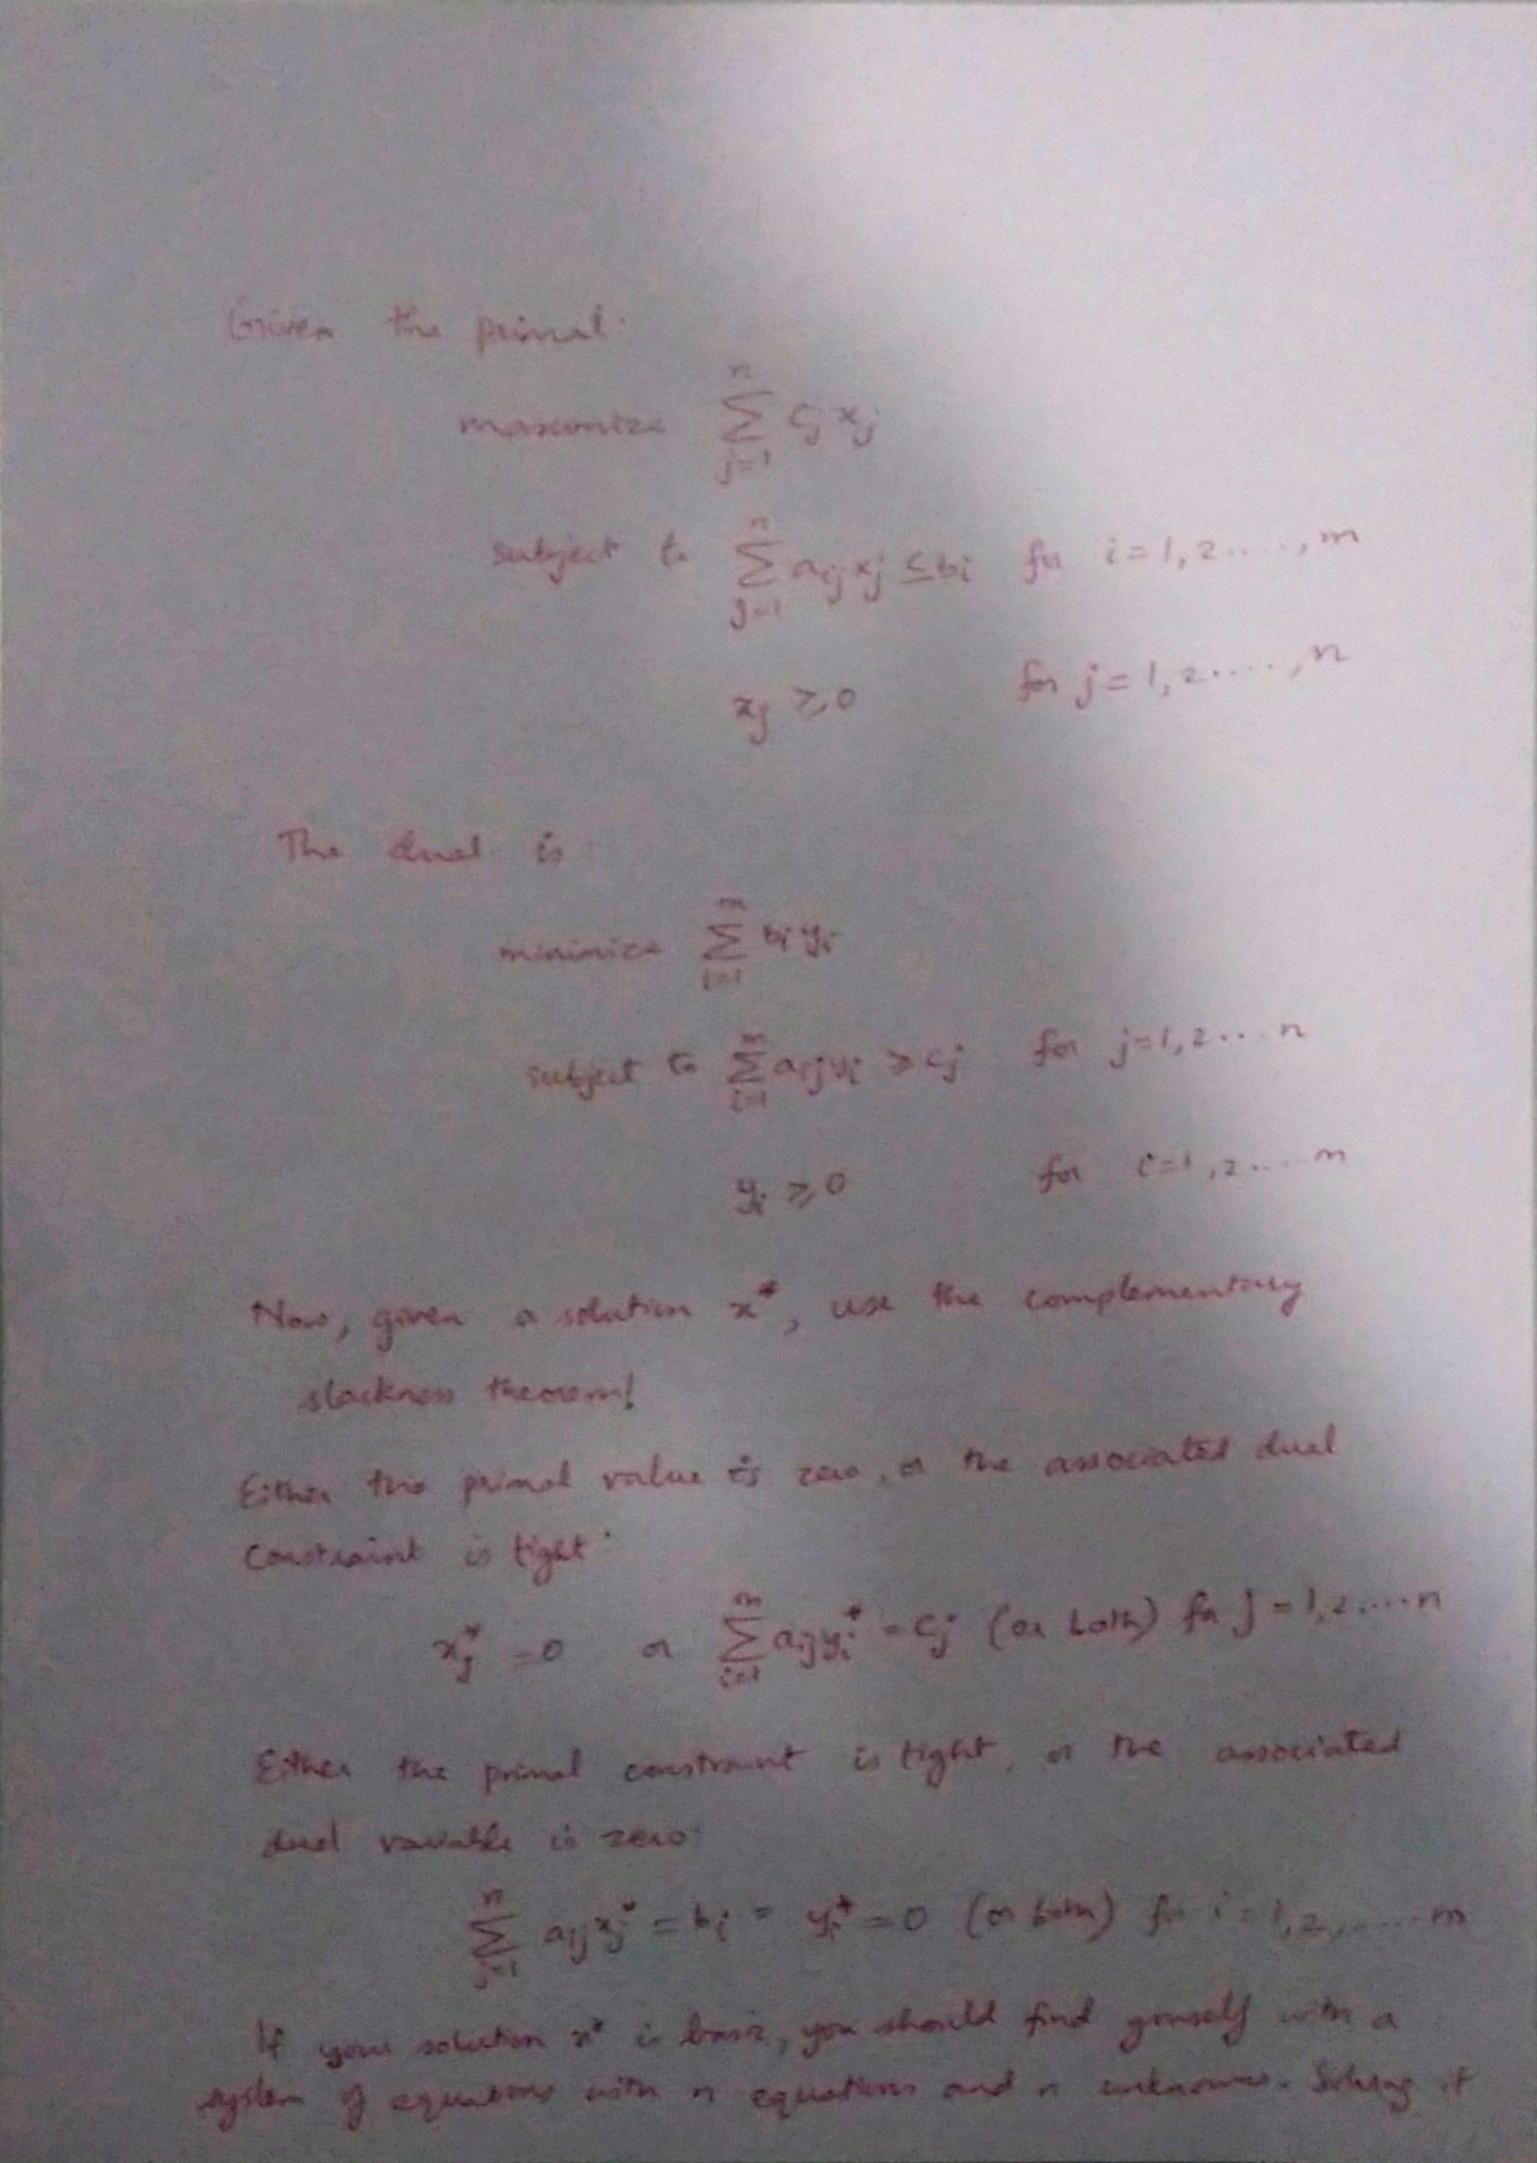 Given the primal:
maximize $\sum_{j=1}^{n} c_j x_j$
subject to $\sum_{j=1}^{n} a_{ij} x_j \leq b_i$ for $i = 1, 2 ....., m$
$x_j \geq 0$ for $j = 1, 2 ....., n$
The dual is:
minimize $\sum_{i=1}^{m} b_i y_i$
subject to $\sum_{i=1}^{m} a_{ij} y_i \geq c_j$ for $j = 1, 2 ... n$
$y_i \geq 0$ for $i = 1, 2 ..... m$
Now, given a solution $x^*$, use the complementary
slackness theorem!
Either the primal value is zero, or the associated dual
constraint is tight:
$x_j^* = 0$ or $\sum_{i=1}^{m} a_{ij} y_i^* = c_j$ (or both) for $j = 1, 2 ..... n$
Either the primal constraint is tight, or the associated
dual variable is zero:
$\sum_{j=1}^{n} a_{ij} x_j^* = b_i = y_i^* = 0$ (or both) for $i = 1, 2, ..... m$
If your solution $x^*$ is basic, you should find yourself with a
system of equations with n equations and n unknowns. Solving it